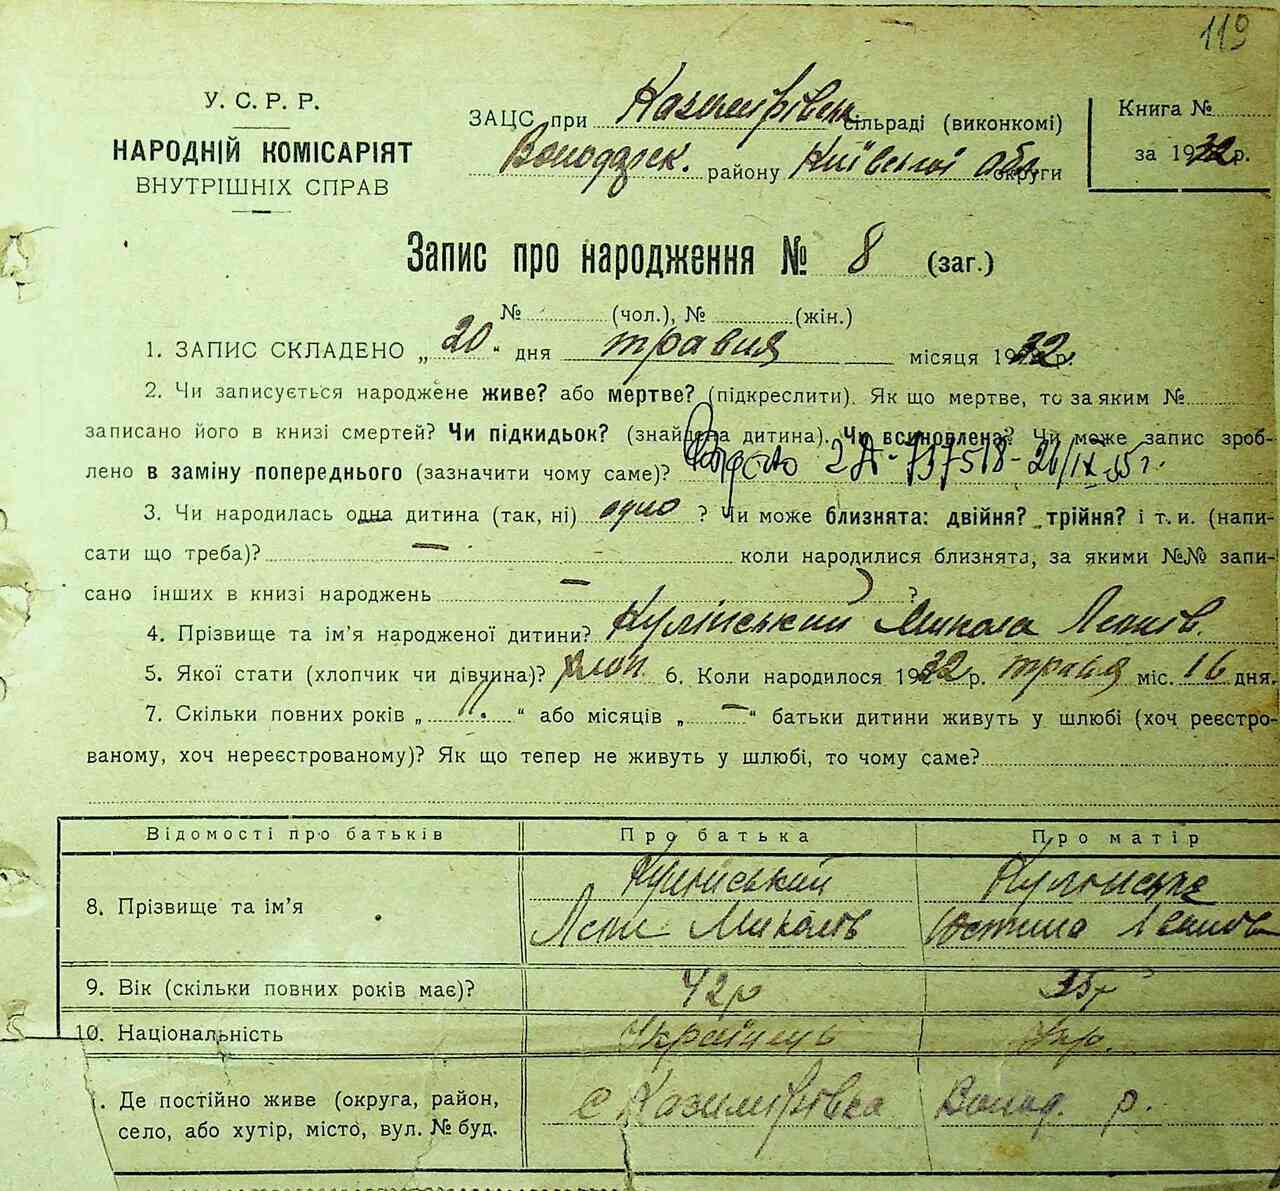 119
У. С. Р. Р.
НАРОДНІЙ КОМІСАРІЯТ
ВНУТРІШНІХ СПРАВ
ЗАЦС при Казимирівск сільраді (виконкомі)
Володарск. району Київської обл. округи
Книга №
за 1932 р.
Запис про народження № 8 (заг.)
№ (чол.), № (жін.)
1. ЗАПИС СКЛАДЕНО „20“ дня травня місяця 1932 р.
2. Чи записується народжене живе? або мертве? (підкреслити). Як що мертве, то за яким №
записано його в книзі смертей? Чи підкидьок? (знайдена дитина). Чи всиновлена? Чи може запис зроб-
лено в заміну попереднього (зазначити чому саме)? 2А-737518-26/IX 55 г.
3. Чи народилась одна дитина (так, ні) одно ? Чи може близнята: двійня? трійня? і т. и. (напи-
сати що треба)? — коли народилися близнята, за якими №№ запи-
сано інших в книзі народжень — ?
4. Прізвище та ім’я народженої дитини? Кулінський Микола Леонів.
5. Якої стати (хлопчик чи дівчина)? хлоп. 6. Коли народилося 1932 р. травня міс. 16 дня.
7. Скільки повних років „11“ або місяців „—“ батьки дитини живуть у шлюбі (хоч реєстро-
ваному, хоч нереєстрованому)? Як що тепер не живуть у шлюбі, то чому саме?
Відомості про батьків Про батька Про матір
8. Прізвище та ім’я Кулінський Леон Миколів Кулінська Юстина Іванов
9. Вік (скільки повних років має)? 42 р 35 р
10. Національність Українець Укр.
Де постійно живе (округа, район, с Казимирівка Волод. р.
село, або хутір, місто, вул. № буд.